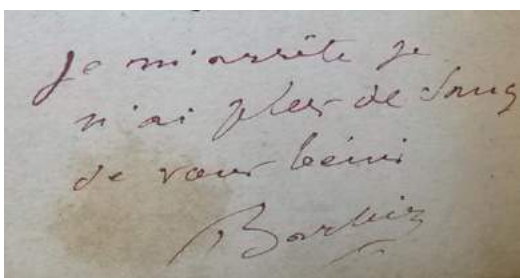 Je m'arrête je
n'ai plus de sang
de vous béni
Barbier